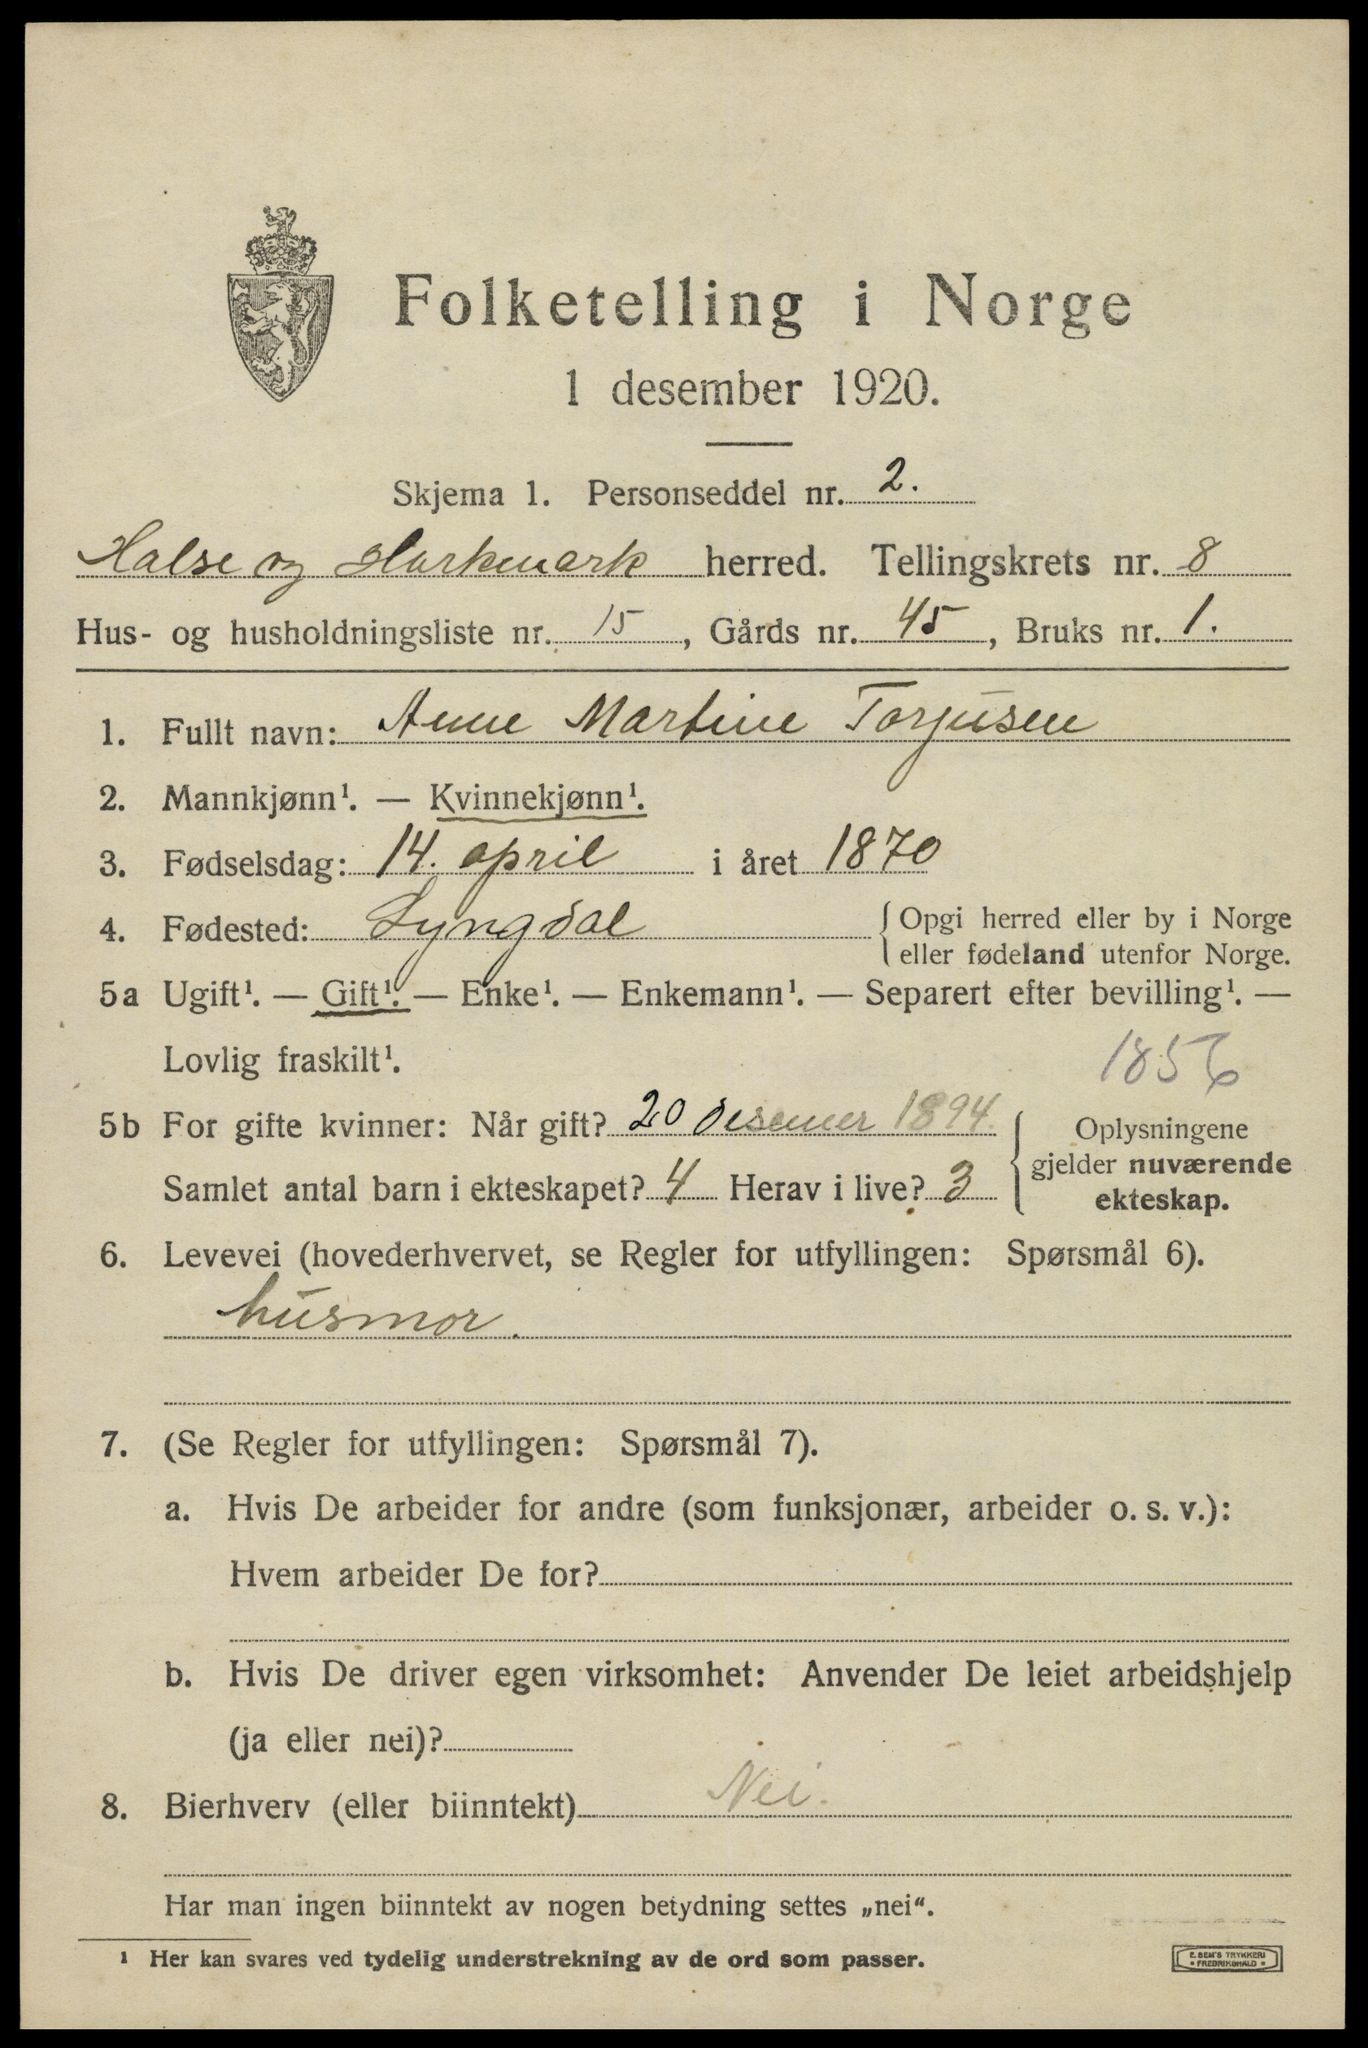 Folketelling i Norge
1 desember 1920.
Skjema 1. Personseddel nr. 2.
Halse og Harkmark herred. Tellingskrets nr. 8
Hus- og husholdningsliste nr. 15, Gårds nr. 45, Bruks nr. 1.
1. Fullt navn: Anne Martine Torjusen
2. Mannkjønn¹. — Kvinnekjønn¹.
3. Fødselsdag: 14. april i året 1870
4. Fødested: Lyngdal { Opgi herred eller by i Norge
eller fødeland utenfor Norge.
5a Ugift¹. — Gift¹. — Enke¹. — Enkemann¹. — Separert efter bevilling¹. —
Lovlig fraskilt¹.
1856
5b For gifte kvinner: Når gift? 20 desemer 1894. { Oplysningene
gjelder nuværende
Samlet antal barn i ekteskapet? 4 Herav i live? 3
ekteskap.
6. Levevei (hovederhvervet, se Regler for utfyllingen: Spørsmål 6).
husmor.
7. (Se Regler for utfyllingen: Spørsmål 7).
a. Hvis De arbeider for andre (som funksjonær, arbeider o. s. v.):
Hvem arbeider De for?
b. Hvis De driver egen virksomhet: Anvender De leiet arbeidshjelp
(ja eller nei)?
8. Bierhverv (eller biinntekt) Nei.
Har man ingen biinntekt av nogen betydning settes „nei“.
¹ Her kan svares ved tydelig understrekning av de ord som passer.
E. SEM'S TRYKKERI
• FREDRIKSHALD •